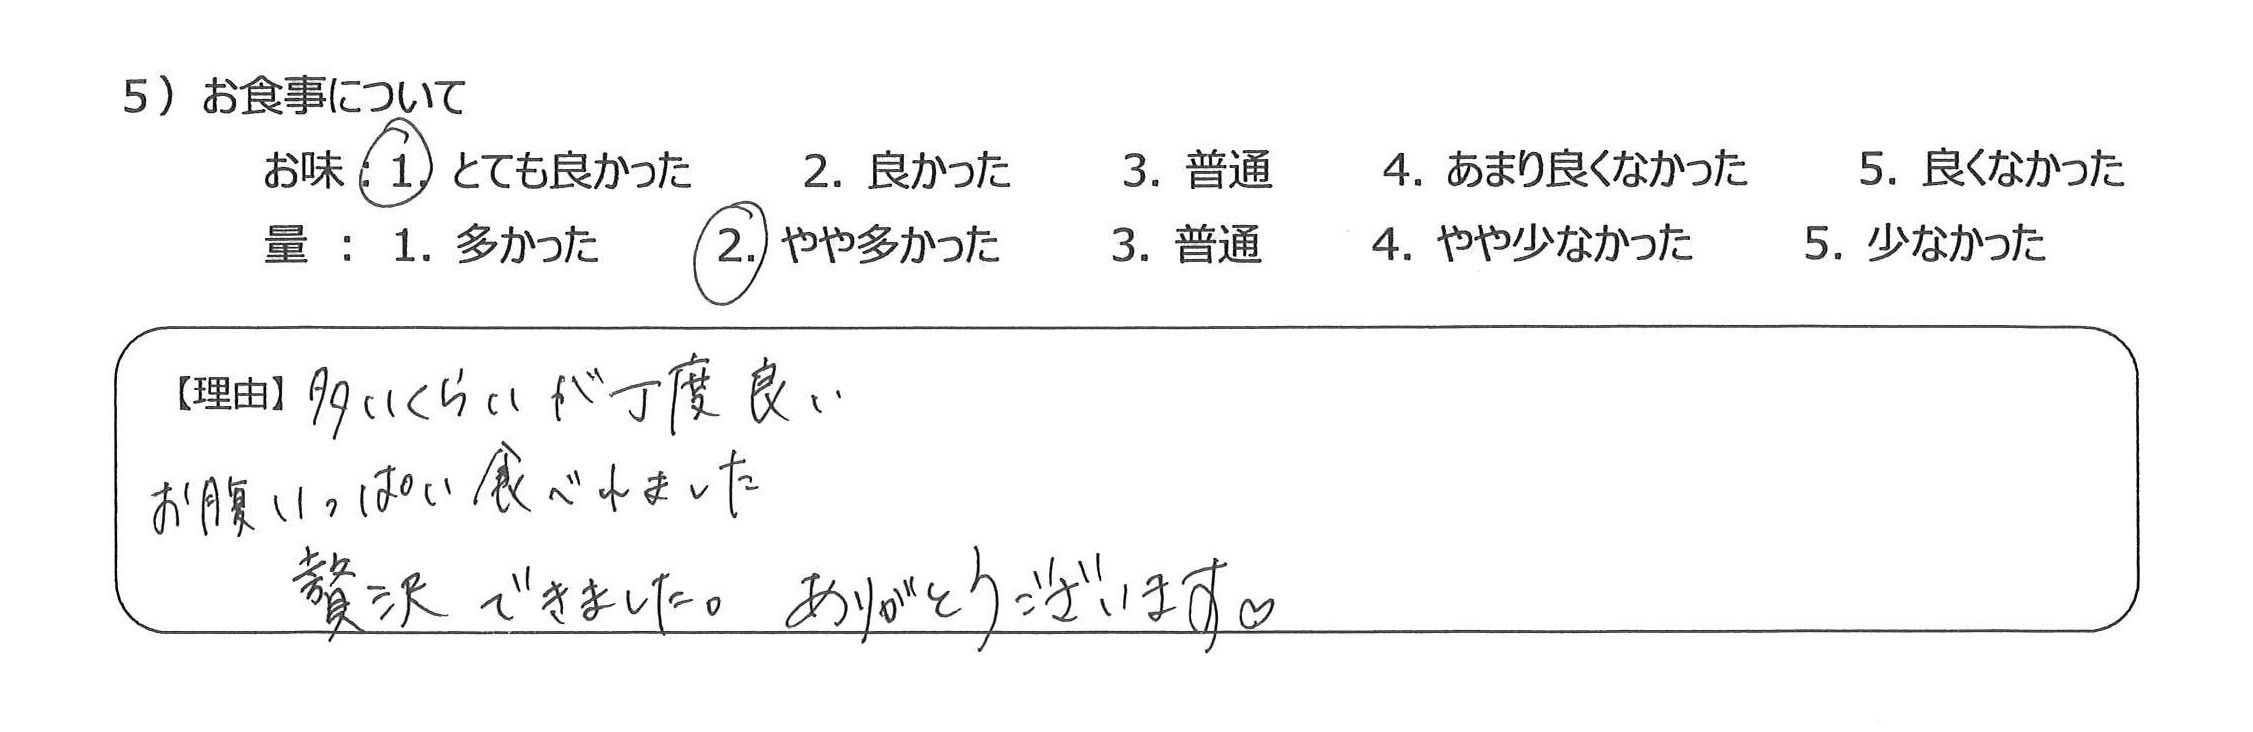 5）お食事について
お味：1. とても良かった 2. 良かった 3. 普通 4. あまり良くなかった 5. 良くなかった
量：1. 多かった 2. やや多かった 3. 普通 4. やや少なかった 5. 少なかった
【理由】多いくらいが丁度良い
お腹いっぱい食べれました
贅沢できました。ありがとうございます♡